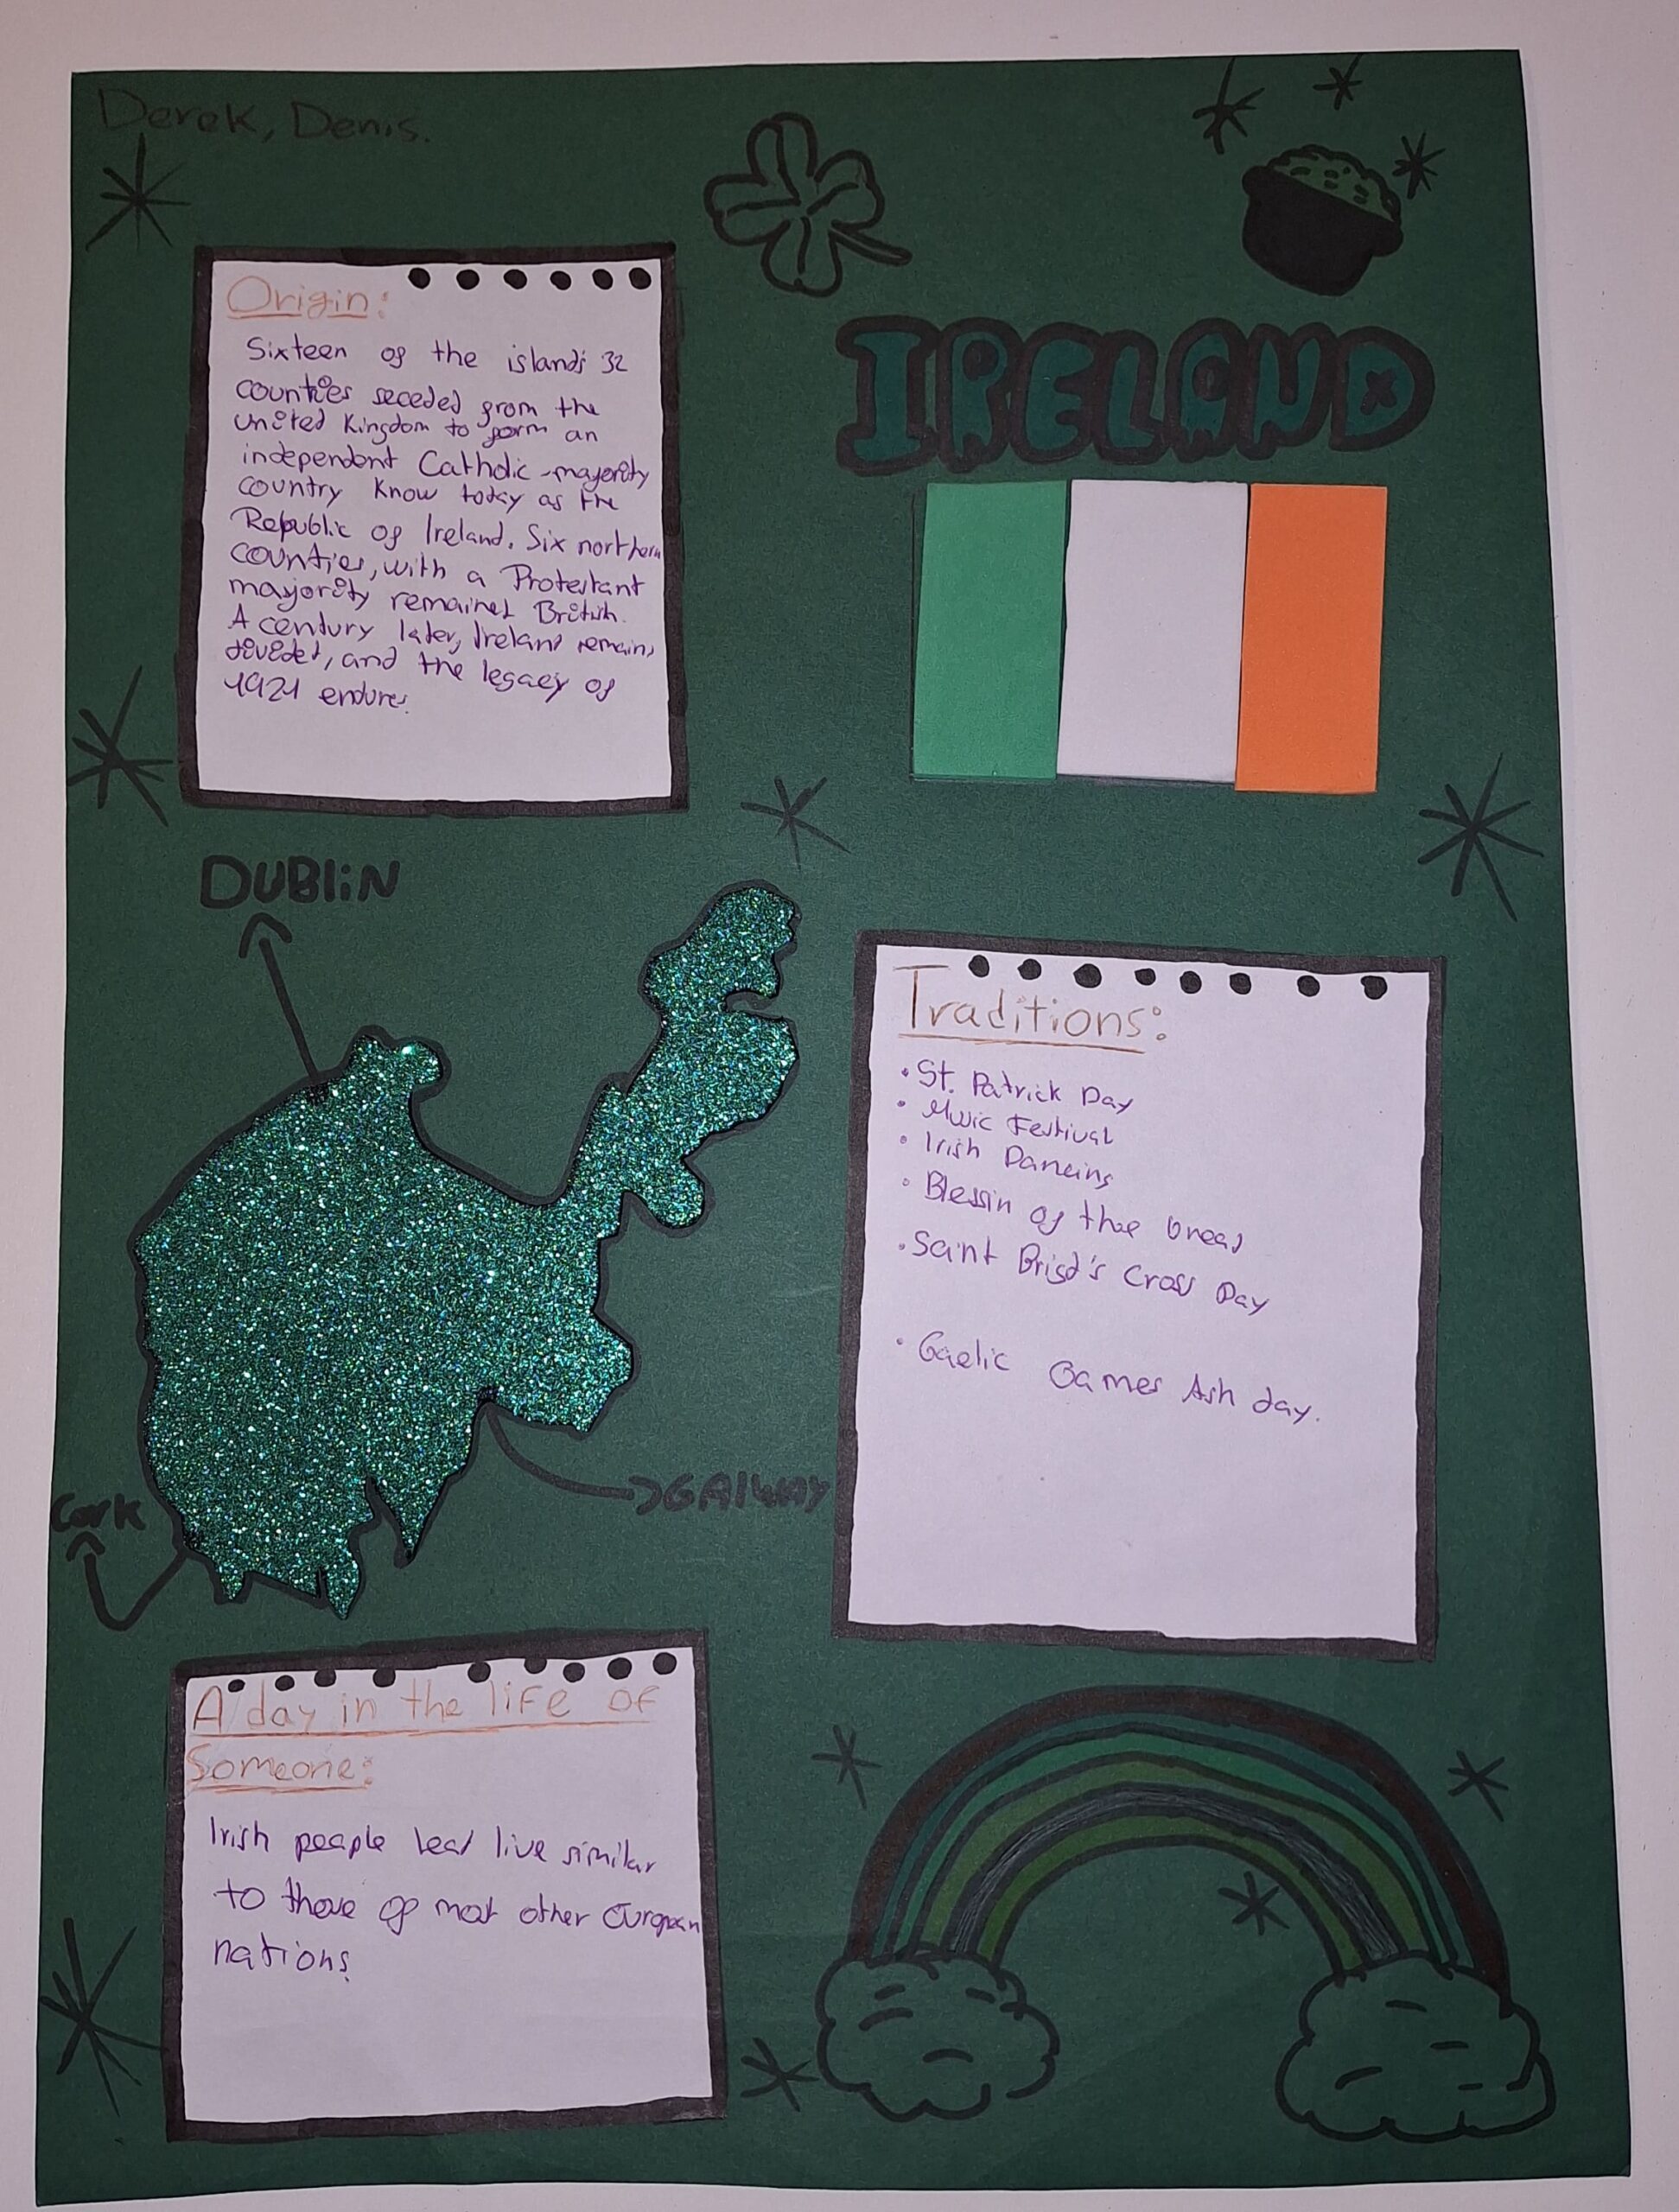 Derek, Denis.
IRELAND
Origin:
Sixteen of the island's 32
counties seceded from the
united Kingdom to form an
independent Catholic-mayority
country know today as the
Republic of Ireland. Six northern
counties, with a Protestant
mayority remained British.
A century later, Ireland remains
divided, and the legacy of
1921 endures.
DUBLiN
GAlWAY
Cork
Traditions:
• St. Patrick Day
• Music Festival
• Irish Dancing
• Blessin of thae bread
• Saint Brigd's Cross Day
• Gaelic Games Ash day.
A day in the life of
Someone:
Irish peaple lead live similar
to those of most other European
nations.